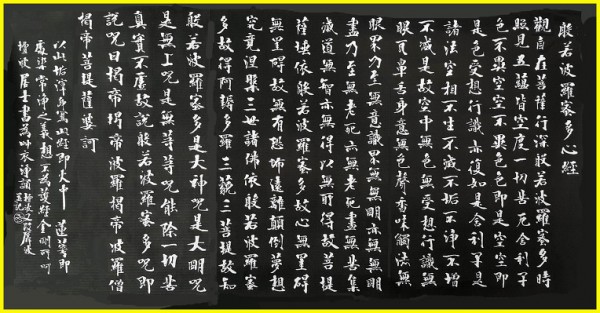 般若波羅蜜多心經
觀自在菩薩行深般若波羅蜜多時
照見五蘊皆空度一切苦厄舍利子
色不異空空不異色色即是空空即
是色受想行識亦復如是舍利子是
諸法空相不生不滅不垢不淨不增
不減是故空中無色無受想行識無
眼耳鼻舌身意無色聲香味觸法無
眼界乃至無意識界無無明亦無無明
盡乃至無老死亦無老死盡無苦集
滅道無智亦無得以無所得故菩提
薩埵依般若波羅蜜多故心無罣礙
無罣礙故無有恐怖遠離顛倒夢想
究竟涅槃三世諸佛依般若波羅蜜
多故得阿耨多羅三藐三菩提故知
般若波羅蜜多是大神咒是大明咒
是無上咒是無等等咒能除一切苦
真實不虛故說般若波羅蜜多咒即
說咒曰揭帝揭帝般羅揭帝波羅僧
揭帝菩提薩婆訶
以山垢淨身寫山經即火中蓮華即
居士書為